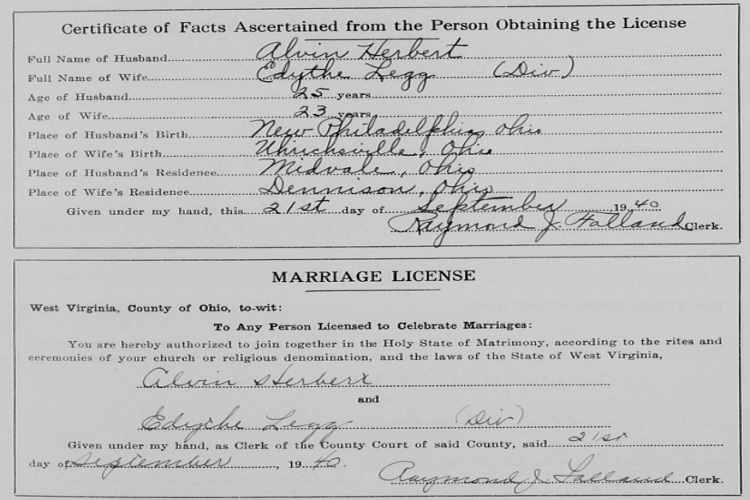 Certificate of Facts Ascertained from the Person Obtaining the License
Full Name of Husband Alvin Herbert
Full Name of Wife Edythe Legg (Div)
Age of Husband 25 years
Age of Wife 23 years
Place of Husband's Birth New Philadelphia, Ohio
Place of Wife's Birth Uhrichsville, Ohio
Place of Husband's Residence Midvale, Ohio
Place of Wife's Residence Dennison, Ohio
Given under my hand, this 21st day of September 1940
Raymond J. Falland Clerk.
MARRIAGE LICENSE
West Virginia, County of Ohio, to-wit:
To Any Person Licensed to Celebrate Marriages:
You are hereby authorized to join together in the Holy State of Matrimony, according to the rites and
ceremonies of your church or religious denomination, and the laws of the State of West Virginia,
Alvin Herbert
and
Edythe Legg (Div)
Given under my hand, as Clerk of the County Court of said County, said 21st
day of September, 1940. Raymond J. Falland Clerk.